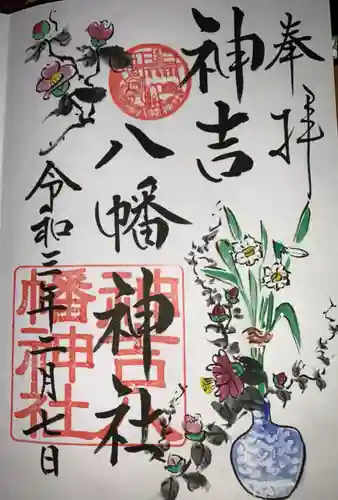 奉拝
神吉
八幡神社
令和三年二月七日
神吉八幡神社